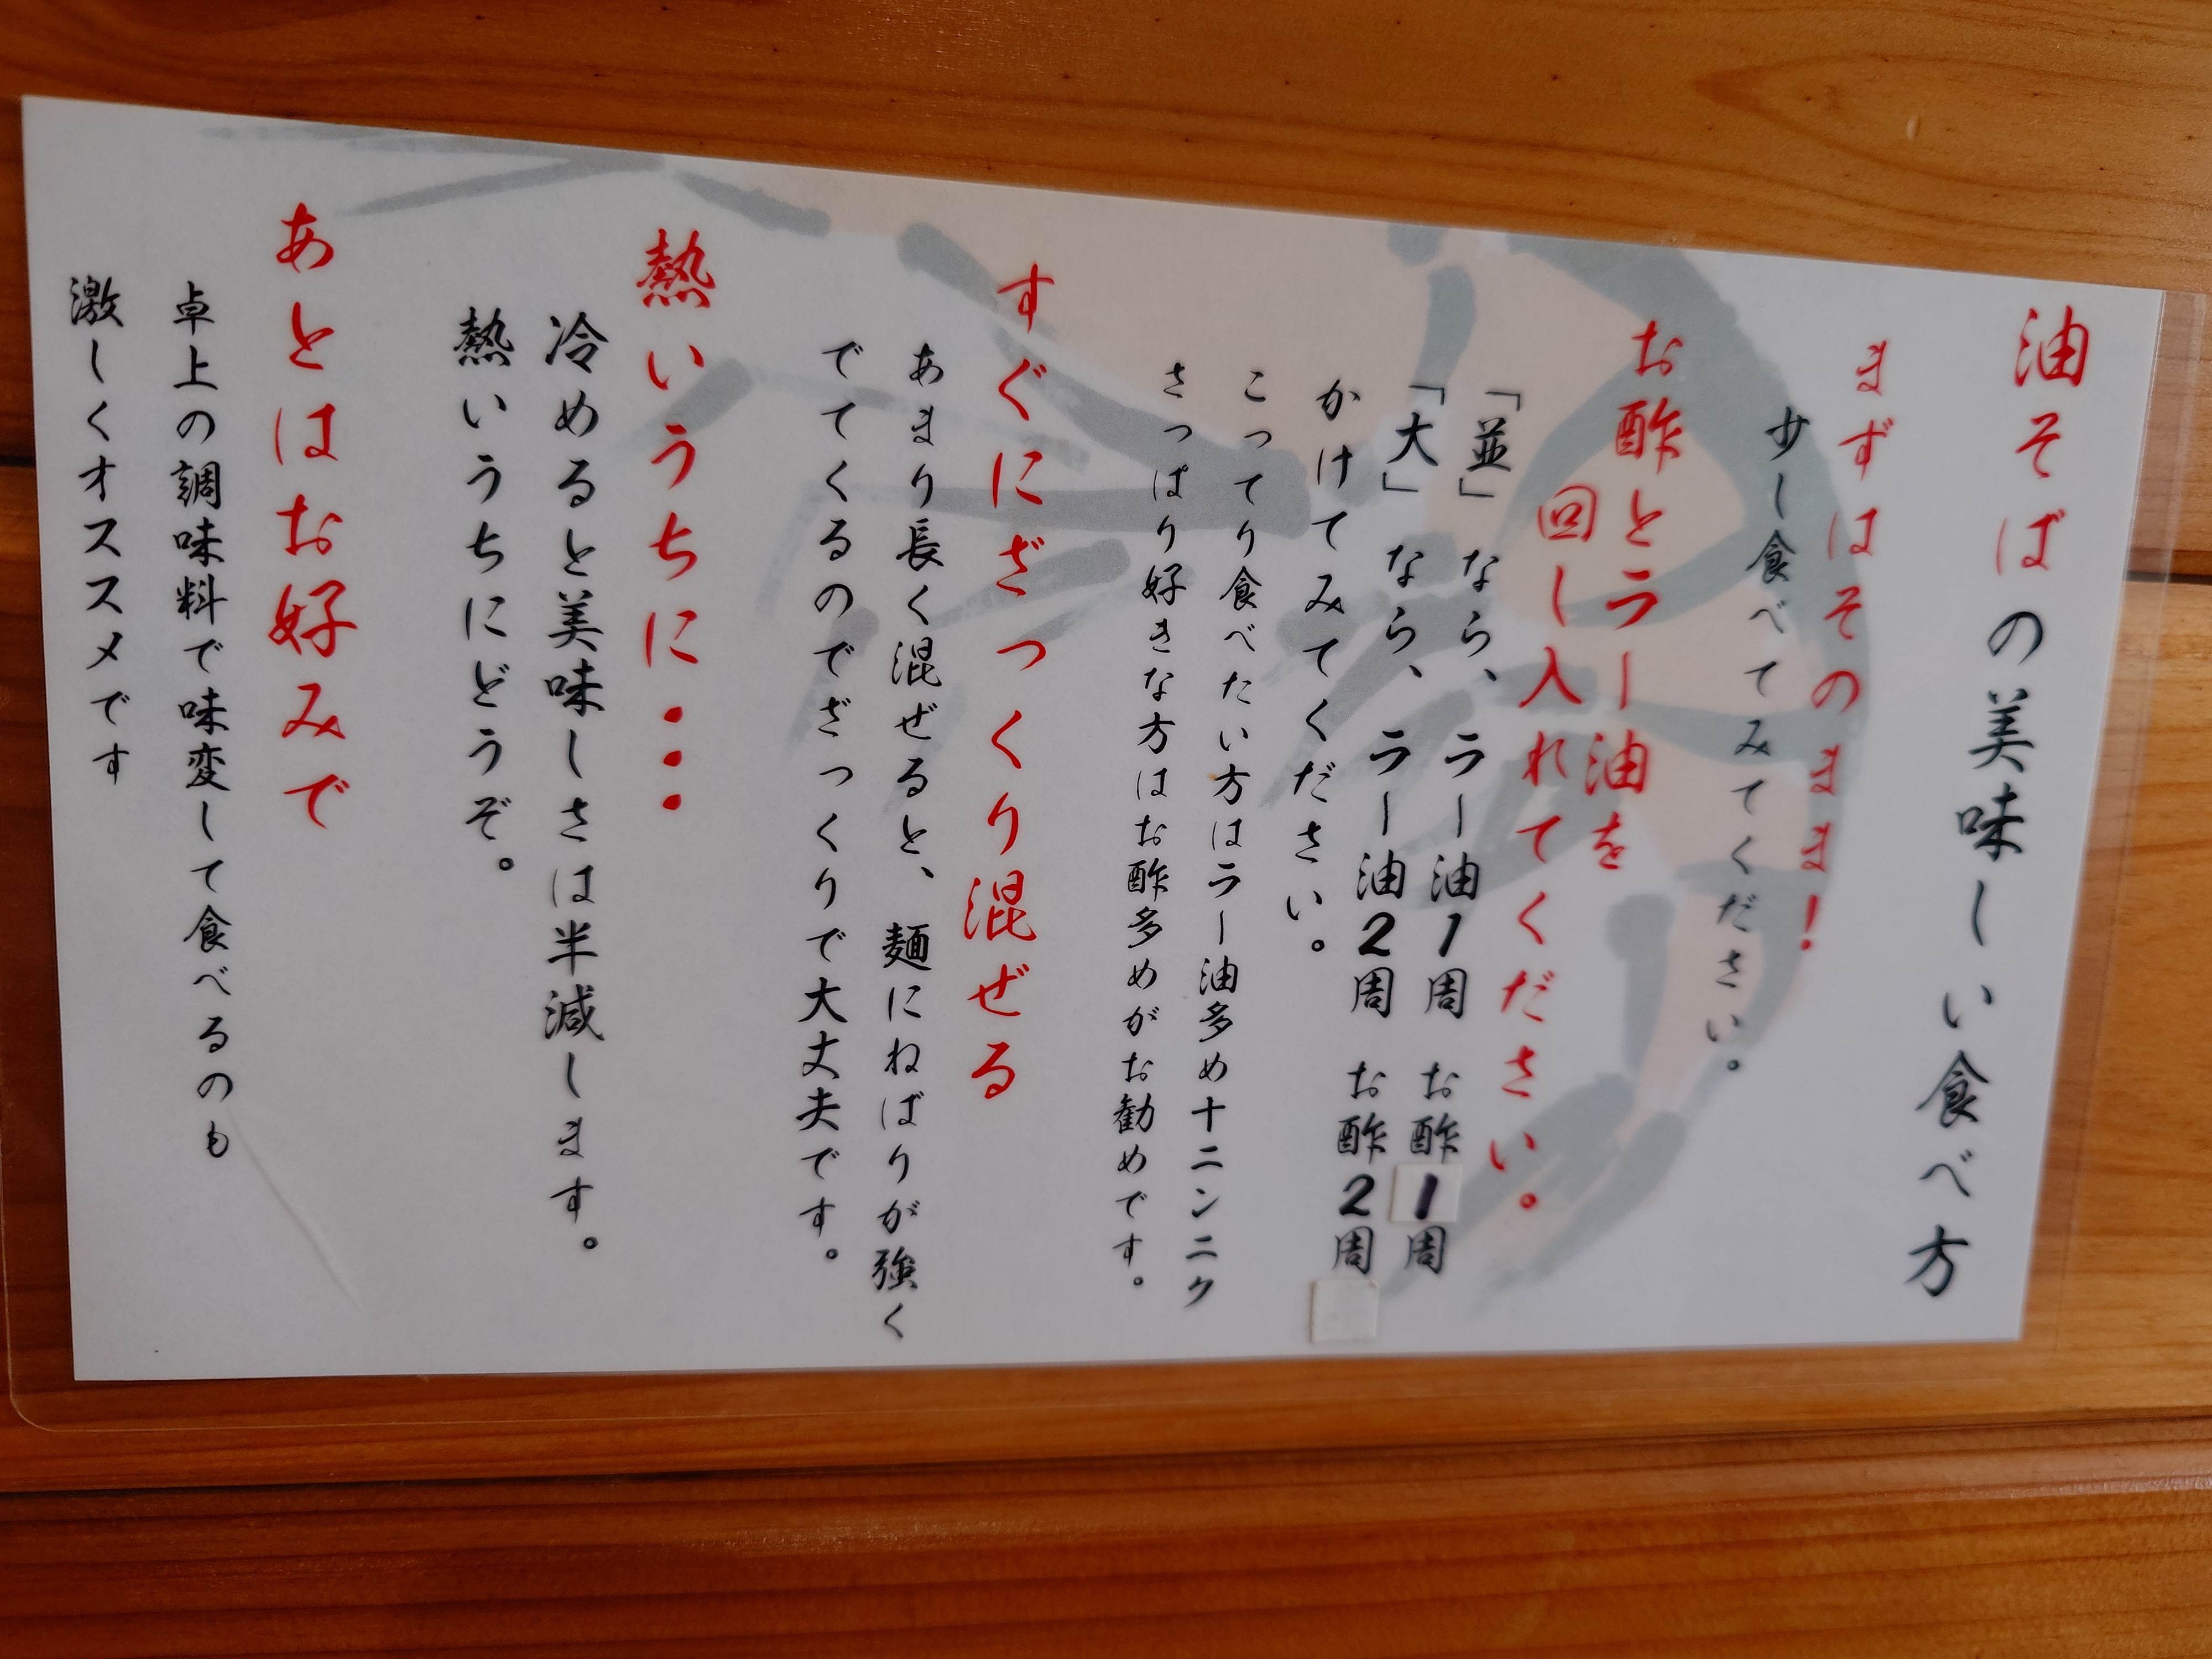 油そばの美味しい食べ方
まずはそのまま!
少し食べてみてください。
お酢とラー油を
回し入れてください。
「並」なら、ラー油1周 お酢1周
「大」なら、ラー油2周 お酢2周
かけてみてください。
こってり食べたい方はラー油多め+ニンニク
さっぱり好きな方はお酢多めがお勧めです。
すぐにざっくり混ぜる
あまり長く混ぜると、麺にねばりが強く
でてくるのでざっくりで大丈夫です。
熱いうちに・・・
冷めると美味しさは半減します。
熱いうちにどうぞ。
あとはお好みで
卓上の調味料で味変して食べるのも
激しくオススメです